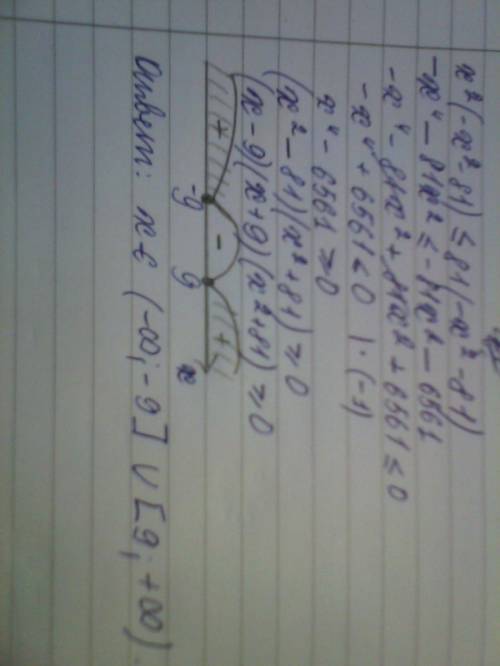 x²(-x²-81) ≤ 81(-x²-81)
-x⁴ - 81x² ≤ -81x² - 6561
-x⁴ - 81x² + 81x² + 6561 ≤ 0
-x⁴ + 6561 ≤ 0 | · (-1)
x⁴ - 6561 ≥ 0
(x² - 81)(x² + 81) ≥ 0
(x - 9)(x + 9)(x² + 81) ≥ 0
+ - +
-9 9 x
Ответ: x ∈ (-∞; -9] ∪ [9; +∞)